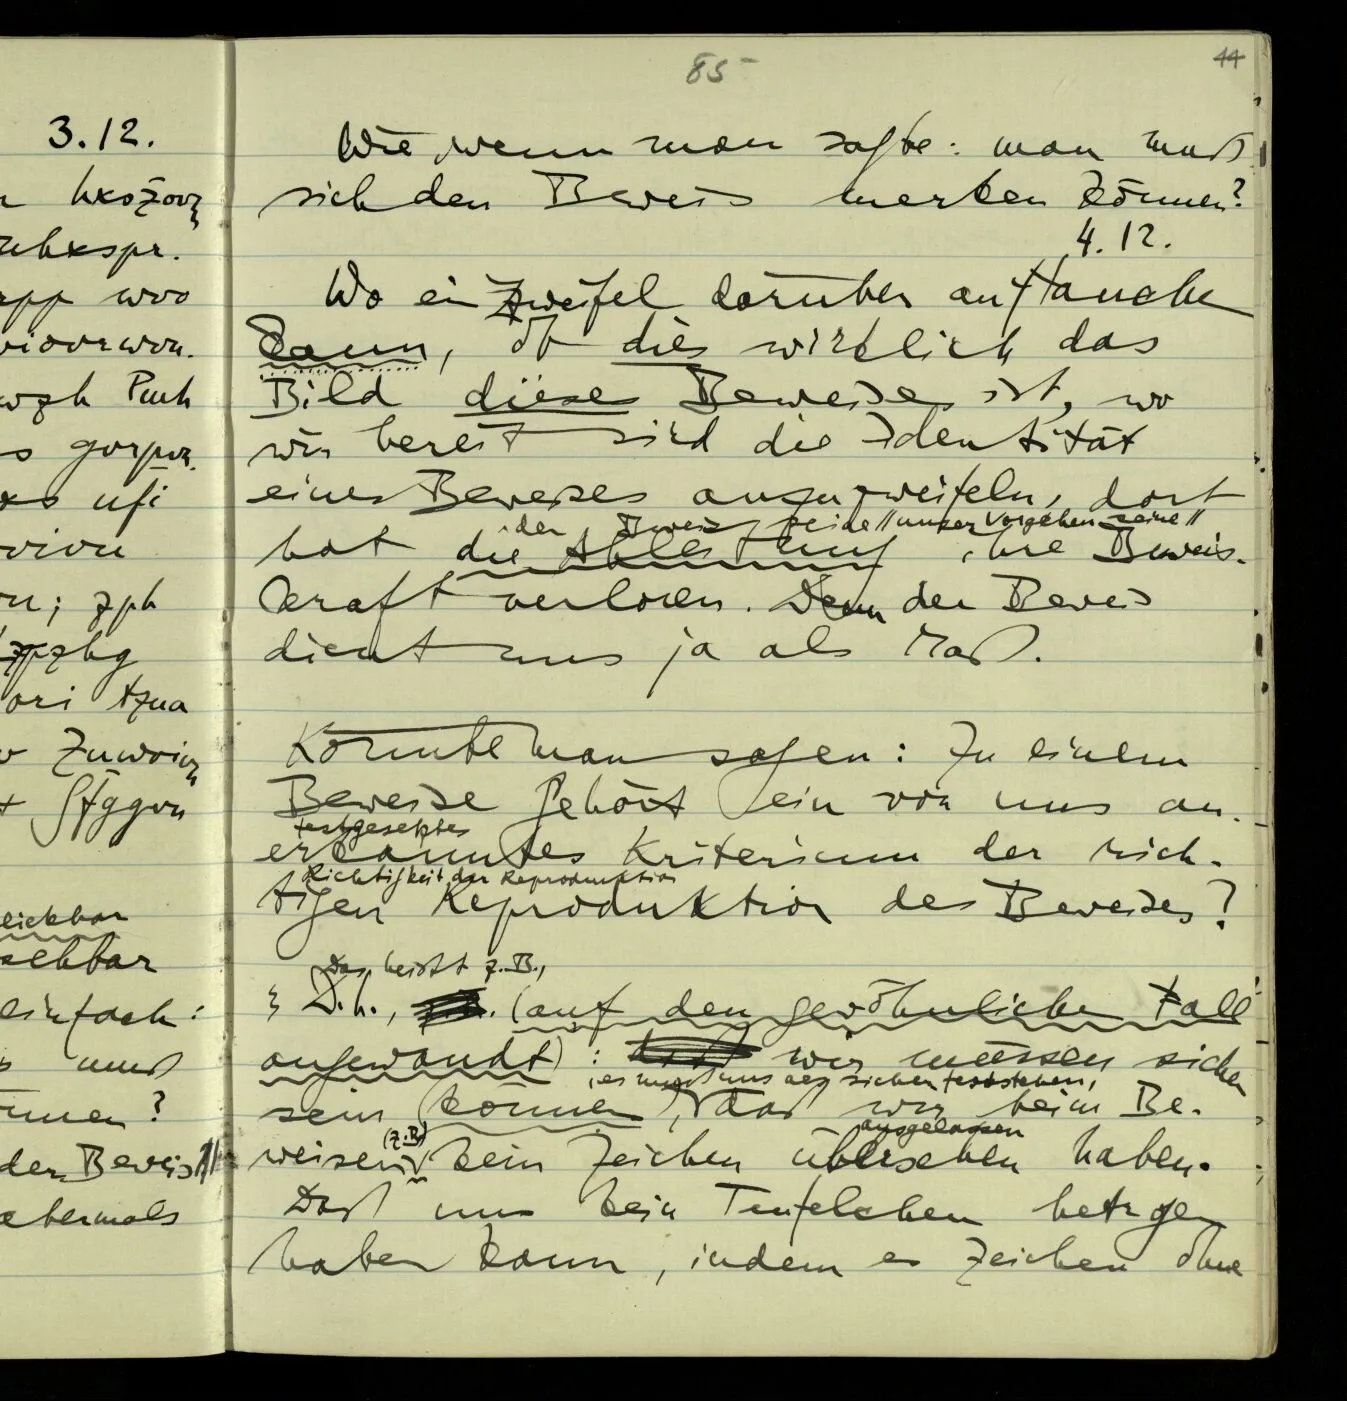 3.12.
uhkspr.
woo
ufi
eickbar
sehbar
einfach:
muß
nnen?
der Beweis
abermals
85
44
Wie wenn man sagte: man muß
sich den Beweis merken können?
4.12.
Wo ein Zweifel darüber auftauchen
kann, ob dies wirklich das
Bild dieses Beweises ist, wo
wir bereit sind die Identität
eines Beweises anzuzweifeln, dort
der Beweis seine // unser Vorgehen seine //
hat die Ableitung ihre Beweis-
kraft verloren. Denn der Beweis
dient uns ja als Maß.
Könnte man sagen: Zu einem
Beweise gehört ein von uns an-
festgesetztes
erkanntes Kriterium der rich-
Richtigkeit der Reproduktion
tigen Reproduktion des Beweises?
Das heißt z.B.,
D.h., (auf den gewöhnlichen Fall
angewandt): wir müssen sicher
, es muß uns als sicher feststehen,
sein (können), daß wir beim Be-
(z.B) ausgelassen
weisen kein Zeichen übersehen haben.
Daß uns kein Teufelchen betrogen
haben kann, indem es Zeichen ohne